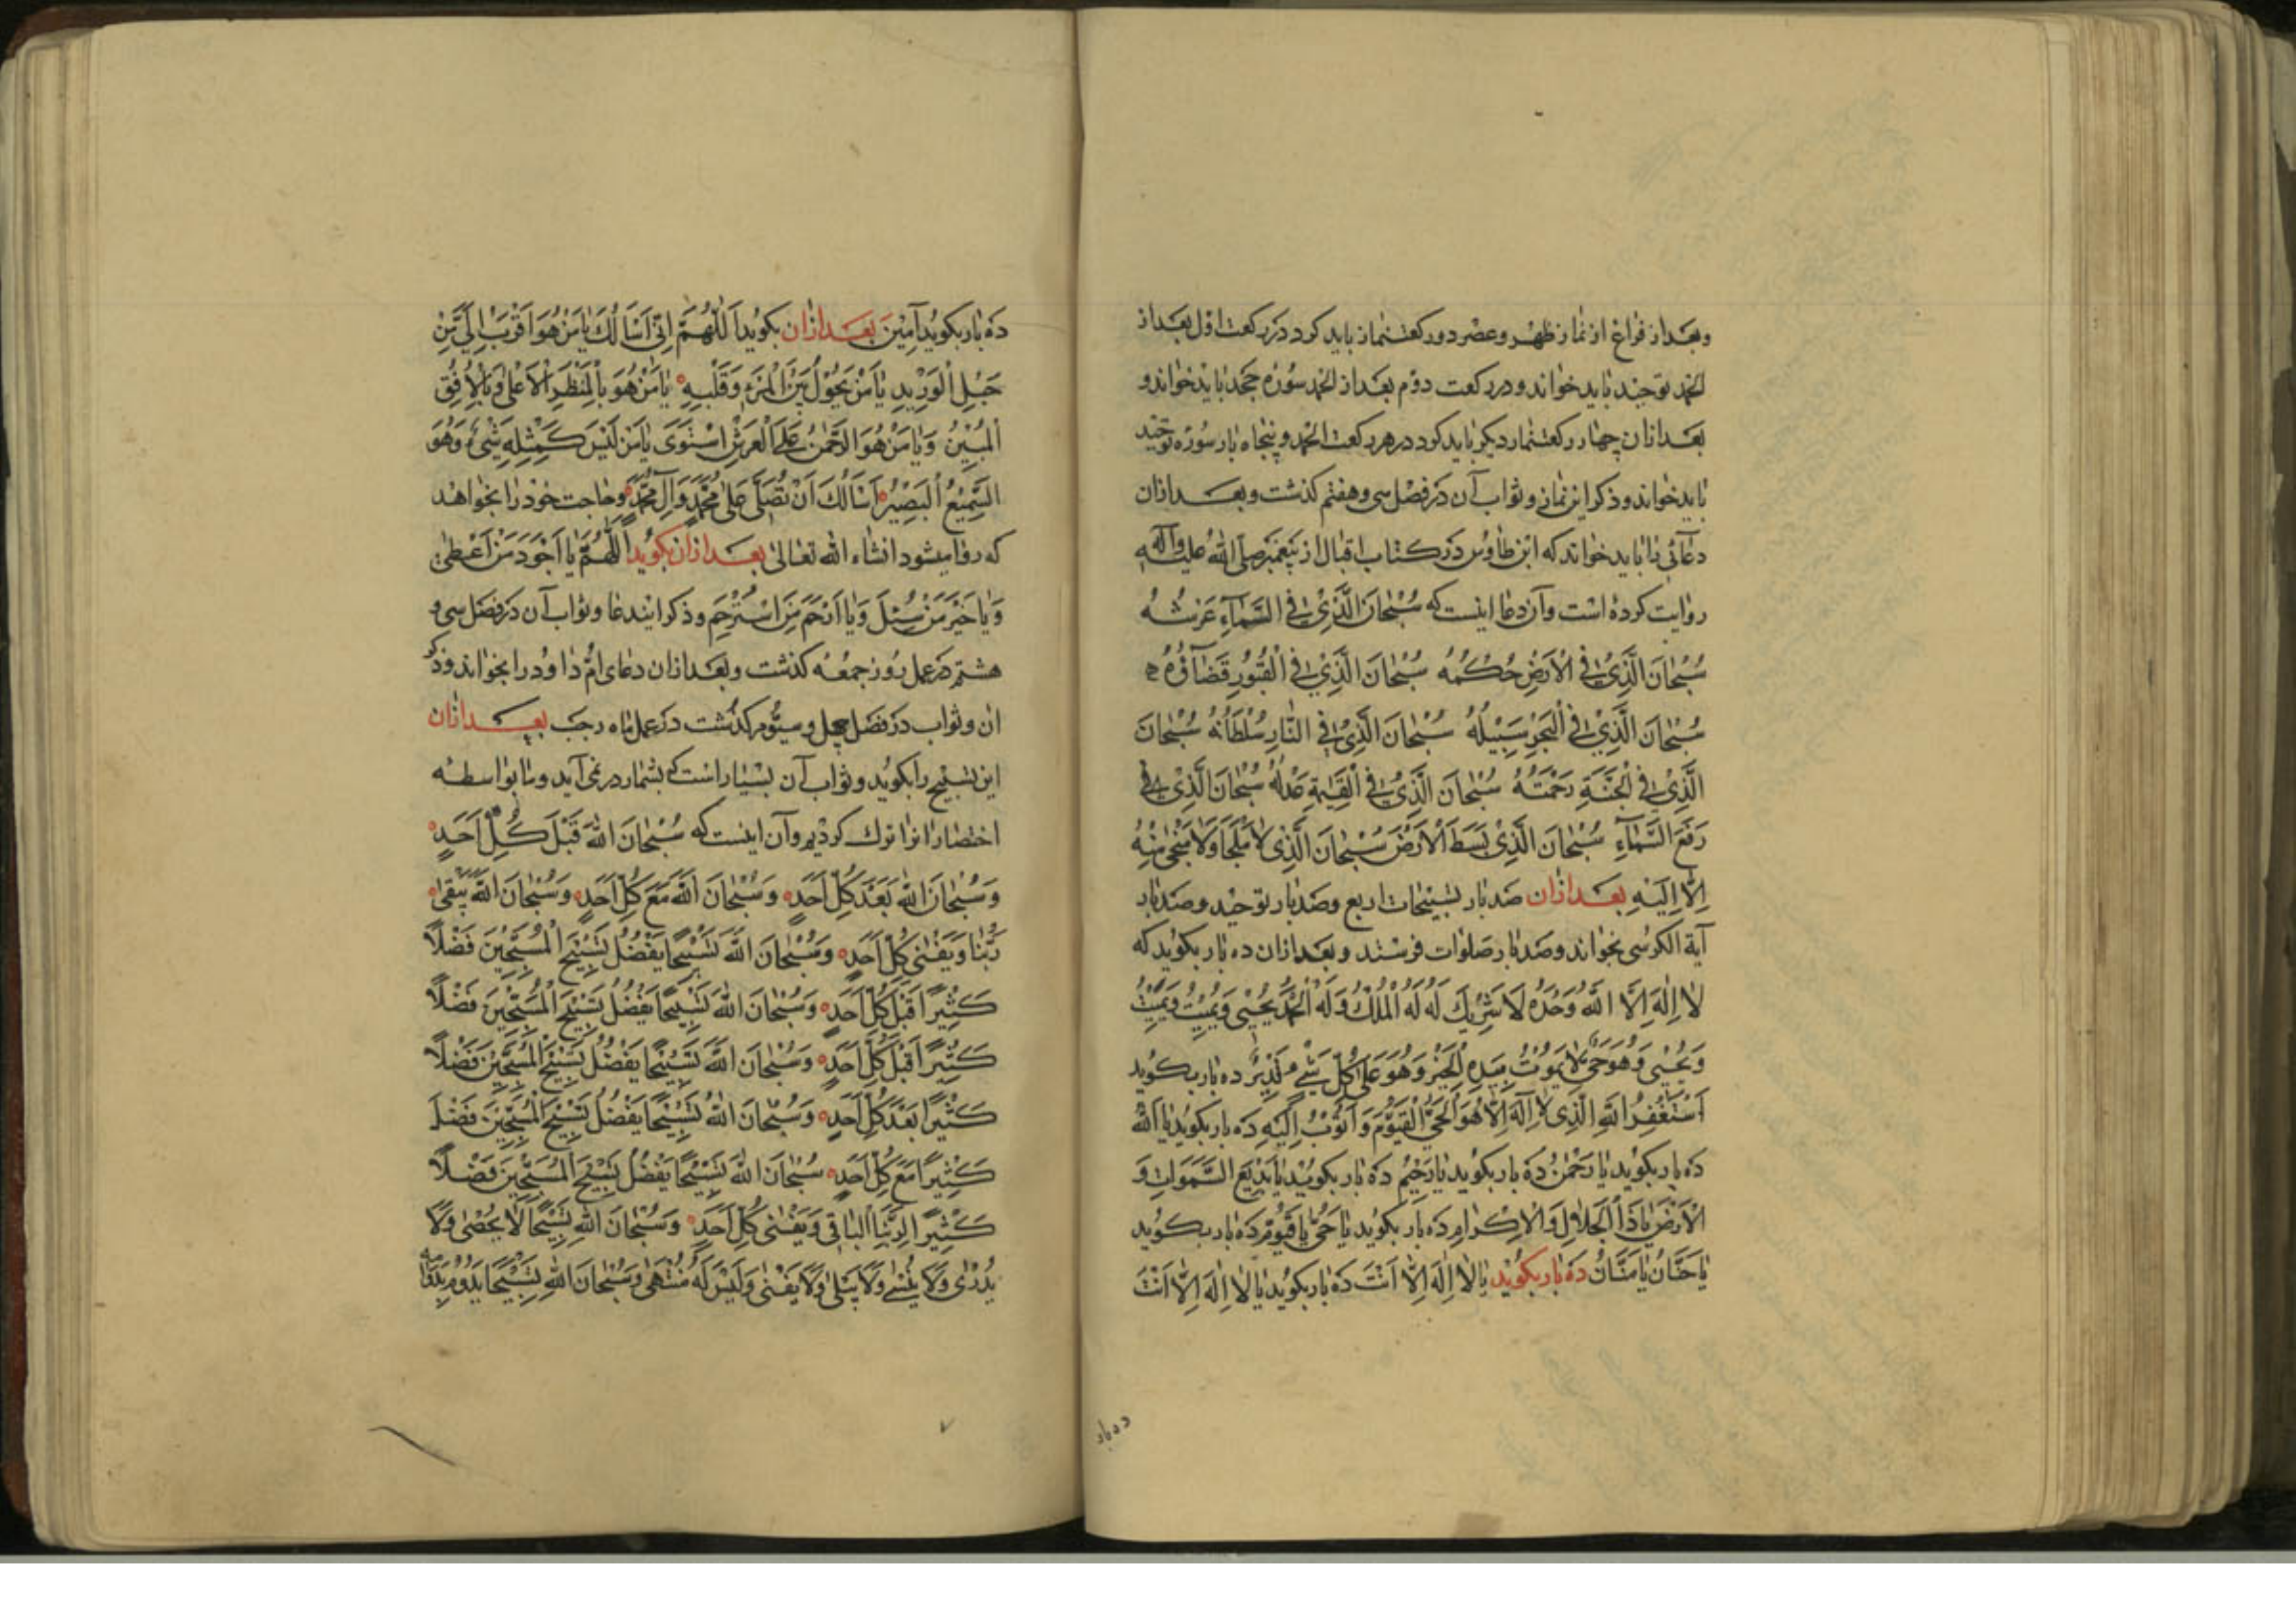 وبعد از فراغ از نماز ظهر و عصر دو ركعت نماز بايد كرد در ركعت اول بعد از
الحمد توحيد بايد خواند و در ركعت دوم بعد از الحمد سوره جحد بايد خواند و
بعد از ان چهار ركعت نماز ديكر بايد كرد در هر ركعت الحمد و پنجاه بار سوره توحيد
بايد خواند و ذكر اين نماز و ثواب آن در فصل سى و هفتم كذشت و بعد از ان
دعائى را بايد خواند كه ابن طاوس در كتاب اقبال از پيغمبر صلى الله عليه وآله
روايت كرده است وآن دعا اينست كه سُبْحَانَ الَّذِيْ فِي السَّمَآءِ عَرْشُهُ
سُبْحَانَ الَّذِيْ فِي الْاَرْضِ حُكْمُهُ سُبْحَانَ الَّذِيْ فِي الْقُبُوْرِ قَضَآؤُهُ
سُبْحَانَ الَّذِيْ فِي الْبَحْرِ سَبِيْلُهُ سُبْحَانَ الَّذِيْ فِي النَّارِ سُلْطَانُهُ سُبْحَانَ
الَّذِيْ فِي الْجَنَّةِ رَحْمَتُهُ سُبْحَانَ الَّذِيْ فِي الْقِيٰمَةِ عَدْلُهُ سُبْحَانَ الَّذِيْ
رَفَعَ السَّمَآءِ سُبْحَانَ الَّذِيْ بَسَطَ الْاَرْضَ سُبْحَانَ الَّذِى لَا مَلْجَاَ وَلَا مَنْجٰى مِنْهُ
اِلَّا اِلَيْهِ بعد از ان صد بار تسبيحات اربع و صد بار توحيد و صد بار
آية الكرسى بخواند و صد بار صلوات فرستد و بعد از ان ده بار بكويد كه
لَا اِلٰهَ اِلَّا اللّٰهُ وَحْدَهُ لَا شَرِيْكَ لَهُ لَهُ الْمُلْكُ وَلَهُ الْحَمْدُ يُحْيِيْ وَيُمِيْتُ وَيُمِيْتُ
وَيُحْيِىْ وَهُوَ حَيٌّ لَا يَمُوْتُ بِيَدِهِ الْخَيْرُ وَهُوَ عَلٰى كُلِّ شَيْءٍ قَدِيْرٌ ده بار بكويد
اَسْتَغْفِرُ اللّٰهَ الَّذِى لَا اِلٰهَ اِلَّا هُوَ الْحَيُّ الْقَيُّوْمُ وَاَتُوْبُ اِلَيْهِ ده بار بكويد يَا اَللّٰهُ
ده بار بكويد يَا رَحْمٰنُ ده بار بكويد يَا رَحِيْمُ ده بار بكويد يَا بَدِيْعَ السَّمٰوَاتِ وَ
الْاَرْضِ يَا ذَا الْجَلَالِ وَالْاِكْرَامِ ده بار بكويد يَا حَيُّ يَا قَيُّوْمُ ده بار بكويد
يَا حَنَّانُ يَا مَنَّانُ ده بار بكويد يَا لَا اِلٰهَ اِلَّا اَنْتَ ده بار بكويد يَا لَا اِلٰهَ اِلَّا اَنْتَ
ده بار
ده بار بكويد آمِيْنَ بعد از ان بكويد اَللّٰهُمَّ اِنِّى اَسْاَلُكَ يَا مَنْ هُوَ اَقْرَبُ اِلَيَّ مِنْ
حَبْلِ الْوَرِيْدِ يَا مَنْ يَحُوْلُ بَيْنَ الْمَرْءِ وَقَلْبِهِ يَا مَنْ هُوَ بِالْمَنْظَرِ الْاَعْلٰى وَبِالْاُفُقِ
الْمُبِيْنِ وَيَا مَنْ هُوَ الرَّحْمٰنُ عَلَى الْعَرْشِ اسْتَوٰى يَا مَنْ لَيْسَ كَمِثْلِهِ شَيْءٌ وَهُوَ
السَّمِيْعُ الْبَصِيْرُ اَسْاَلُكَ اَنْ تُصَلِّيَ عَلٰى مُحَمَّدٍ وَآلِ مُحَمَّدٍ وحاجت خود را بخواهد
كه روا ميشود انشاء الله تعالى بعد از ان بكويد اَللّٰهُمَّ يَا اَجْوَدَ مَنْ اَعْطٰى
وَيَا خَيْرَ مَنْ سُئِلَ وَيَا اَرْحَمَ مَنِ اسْتُرْحِمَ و ذكر ايندعا و ثواب آن در فصل سى و
هشتم در عمل روز جمعه كذشت و بعد از ان دعاى ام داود را بخواند و ذكر
ان و ثواب در فصل چهل و سيوم كذشت در عمل ماه رجب بعد از ان
اين تسبيح را بكويد و ثواب آن بسيار است كه بشمار در نمى آيد و ما بواسطه
اختصار انرا ترك كرديم وآن اينست كه سُبْحَانَ اللّٰهِ قَبْلَ كُلِّ اَحَدٍ
وَسُبْحَانَ اللّٰهِ بَعْدَ كُلِّ اَحَدٍ وَسُبْحَانَ اللّٰهِ مَعَ كُلِّ اَحَدٍ وَسُبْحَانَ اللّٰهِ يَبْقٰى
رَبُّنَا وَيَفْنٰى كُلُّ اَحَدٍ وَسُبْحَانَ اللّٰهِ تَسْبِيْحًا يَفْضُلُ تَسْبِيْحَ الْمُسَبِّحِيْنَ فَضْلًا
كَثِيْرًا قَبْلَ كُلِّ اَحَدٍ وَسُبْحَانَ اللّٰهِ تَسْبِيْحًا يَفْضُلُ تَسْبِيْحَ الْمُسَبِّحِيْنَ فَضْلًا
كَثِيْرًا قَبْلَ كُلِّ اَحَدٍ وَسُبْحَانَ اللّٰهِ تَسْبِيْحًا يَفْضُلُ تَسْبِيْحَ الْمُسَبِّحِيْنَ فَضْلًا
كَثِيْرًا بَعْدَ كُلِّ اَحَدٍ وَسُبْحَانَ اللّٰهِ تَسْبِيْحًا يَفْضُلُ تَسْبِيْحَ الْمُسَبِّحِيْنَ فَضْلًا
كَثِيْرًا مَعَ كُلِّ اَحَدٍ سُبْحَانَ اللّٰهِ تَسْبِيْحًا يَفْضُلُ تَسْبِيْحَ الْمُسَبِّحِيْنَ فَضْلًا
كَثِيْرًا لِرَبِّنَا الْبَاقِى وَيَفْنٰى كُلُّ اَحَدٍ وَسُبْحَانَ اللّٰهِ تَسْبِيْحًا لَا يُحْصٰى وَلَا
يُدْرٰى وَلَا يُنْسٰى وَلَا يَبْلٰى وَلَا يَفْنٰى وَلَيْسَ لَهُ مُنْتَهٰى وَسُبْحَانَ اللّٰهِ تَسْبِيْحًا يَدُوْمُ